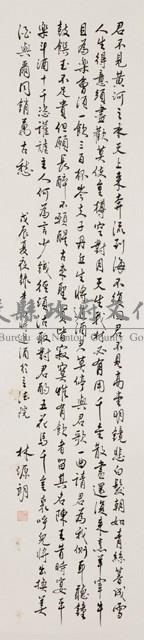 君不見黃河之水天上來奔流到海不復回君不見高堂明鏡悲白髮朝如青絲暮成雪
人生得意須盡歡莫使金樽空對月天生我材必有用千金散盡還復來烹羊宰牛
且為樂會須一飲三百杯岑夫子丹丘生將進酒君莫停與君歌一曲請君為我側耳聽鐘
鼓饌玉不足貴但願長醉不願醒古來聖賢皆寂寞惟有飲者留其名陳王昔時宴平
樂斗酒十千恣讙謔主人何為言少錢徑須沽取對君酌五花馬千金裘呼兒將出換美
酒與爾同銷萬古愁 戊辰夏夜錄李白將進酒於立法院 林源朗
縣政府文化
Bureau of Nantou County Gov